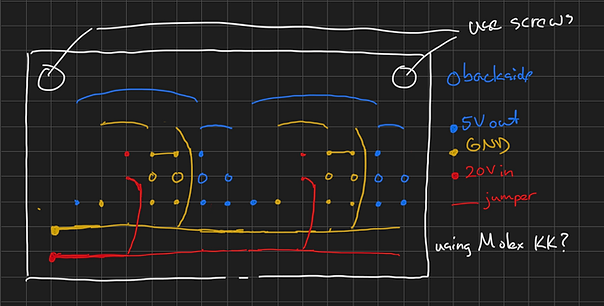 use screws?
backside
5V out
GND
20V in
jumper
using Molex KK?